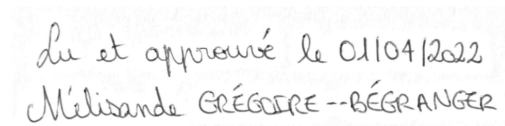 Lu et approuvé le 01/04/2022
Mélisande GRÉGOIRE--BÉGRANGER